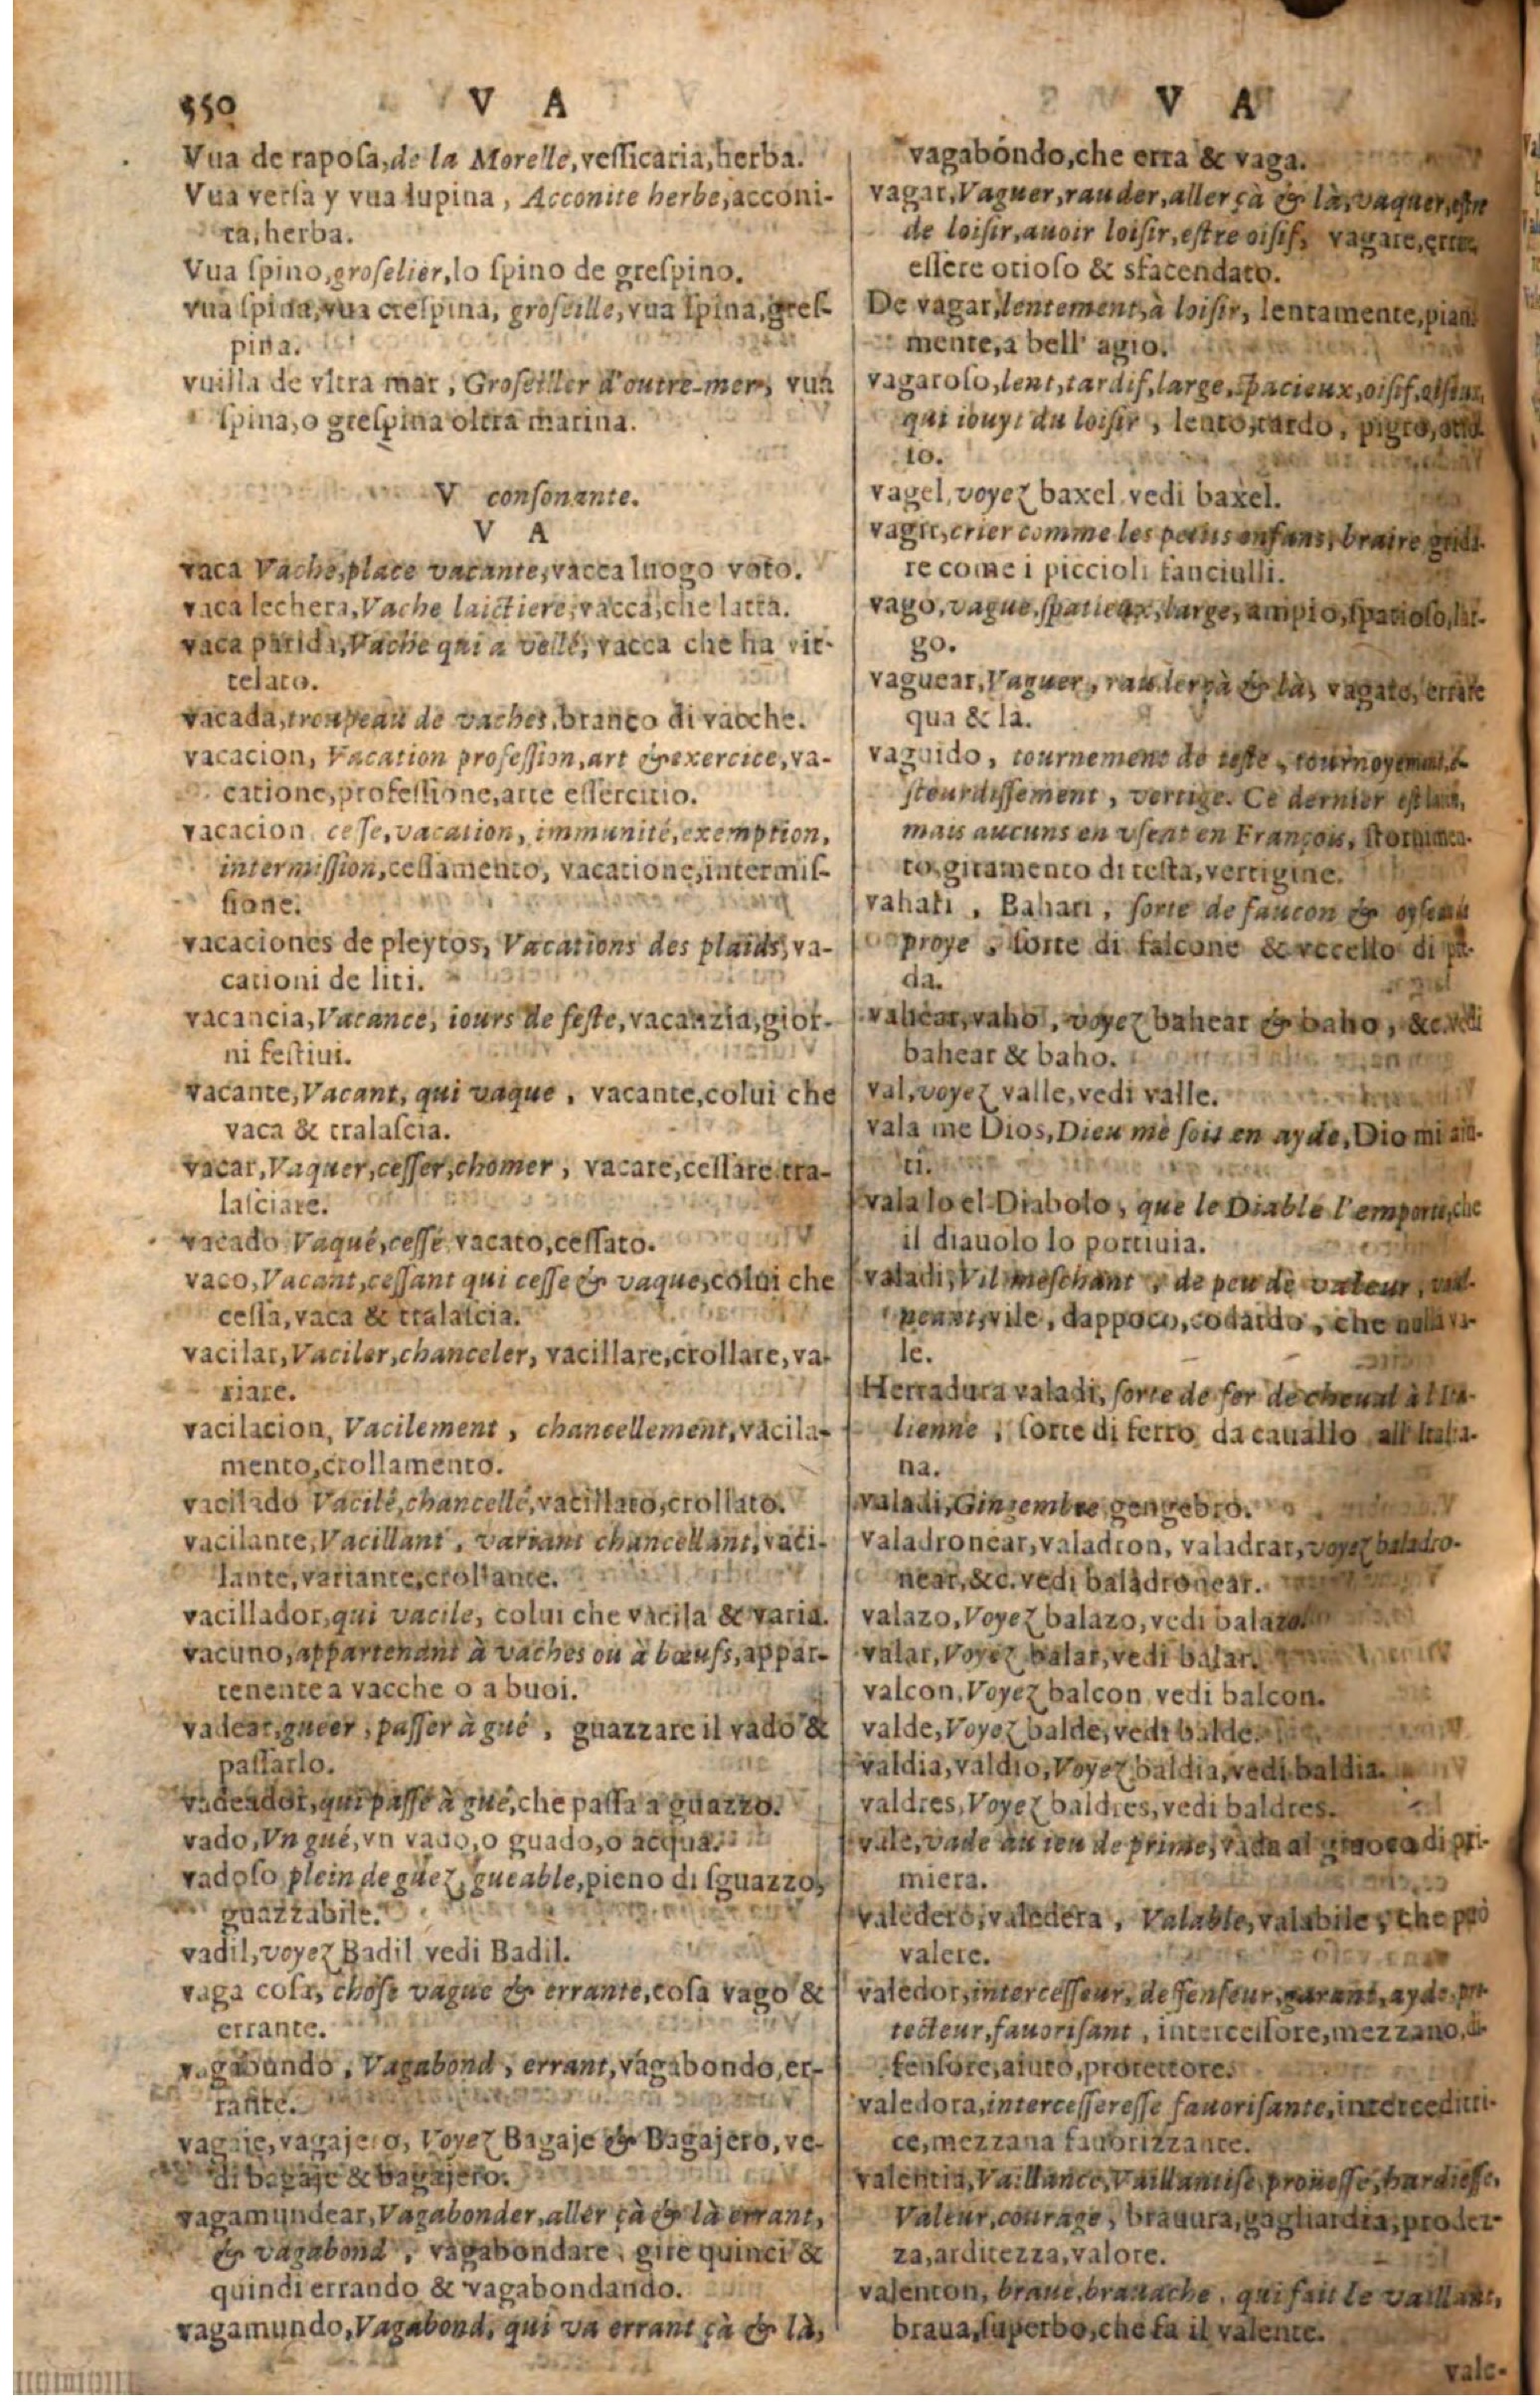 550 V A
Vua de raposa, de la Morelle, vessicaria, herba.
Vua versa y vua lupina, Acconite herbe, acconi-
ta, herba.
Vua spino, groselier, lo spino de grespino.
vua spina, vua crespina, groseille, vua spina, gres-
pina.
vuilla de vltra mar, Groseiller d'outre-mer, vua
spina, o grespina oltra marina.
V consonante.
V A
vaca Vache, place vacante, vacca luogo voto.
vaca lechera, Vache laictiere, vacca, che latta.
vaca parida, Vache qui a vellé, vacca che ha vit-
telato.
vacada, troupeau de vaches, branco di vacche.
vacacion, Vacation profession, art & exercice, va-
catione, professione, arte essercitio.
vacacion cesse, vacation, immunité, exemption,
intermission, cessamento, vacatione, intermis-
sione.
vacaciones de pleytos, Vacations des plaids, va-
cationi de liti.
vacancia, Vacance, iours de feste, vacanzia, gior-
ni festiui.
vacante, Vacant, qui vaque, vacante, colui che
vaca & tralascia.
vacar, Vaquer, cesser, chomer, vacare, cessare tra-
lasciare.
vacado Vaqué, cessé vacato, cessato.
vaco, Vacant, cessant qui cesse & vaque, colui che
cessa, vaca & tralascia.
vacilar, Vaciler, chanceler, vacillare, crollare, va-
riare.
vacilacion, Vacilement, chancellement, vacila-
mento, crollamento.
vacilado Vacilé, chancellé, vacillato, crollato.
vacilante, Vacillant, variant chancellant, vaci-
lante, variante, crollante.
vacillador, qui vacile, colui che vacila & varia.
vacuno, appartenant à vaches ou à bœufs, appar-
tenente a vacche o a buoi.
vadear, gueer, passer à gué, guazzare il vado &
passarlo.
vadeador, qui passe à gué, che passa a guazzo.
vado, Vn gué, vn vado, o guado, o acqua.
vadoso plein de guez, gueable, pieno di sguazzo,
guazzabile.
vadil, voyez Badil vedi Badil.
vaga cosa, chose vague & errante, cosa vago &
errante.
vagabundo, Vagabond, errant, vagabondo, er-
rante.
vagaje, vagajero, Voyez Bagaje & Bagajero, ve-
di bagaje & bagajero.
vagamundear, Vagabonder, aller çà & là errant,
& vagabond, vagabondare, gire quinci &
quindi errando & vagabondando.
vagamundo, Vagabond, qui va errant çà & là,
V A
vagabóndo, che erra & vaga.
vagar, Vaguer, rauder, aller çà & là, vaquer, estre
de loisir, auoir loisir, estre oisif, vagare,
essere otioso & sfacendato.
De vagar, lentement, à loisir, lentamente,
mente, a bell' agio.
vagaroso, lent, tardif, large, spacieux, oisif,
qui iouyt du loisir, lento, tardo, pigro,
to.
vagel, voyez baxel, vedi baxel.
vagir, crier comme les petits enfans, braire grida-
re come i piccioli fanciulli.
vago, vague, spatieux, large, ampio, spatioso, lar-
go.
vaguear, Vaguer, rauder çà & là, vagare, errare
qua & la.
vaguido, tournement de teste, tournoyement,
stourdissement, vertige. Ce dernier est
mais aucuns en vsent en François,
to, giramento di testa, vertigine.
vahari, Bahari, sorte de faucon & oyseau
proye, sorte di falcone & vccello di
da.
vahear, vaho, voyez bahear & baho, &c. vedi
bahear & baho.
val, voyez valle, vedi valle.
vala me Dios, Dieu me soit en ayde, Dio mi aiu-
ti.
vala lo el Diabolo, que le Diable l'emporte, che
il diauolo lo portiuia.
valadi, Vil meschant, de peu de valeur,
vile, dappoco, codardo, che nulla va-
le.
Herradura valadi, sorte de fer de cheual à l'Ita-
lienne, sorte di ferro da cauallo all' Italia-
na.
valadi, Gingembre gengebro.
valadronear, valadron, valadrar, voyez baladro-
near, &c. vedi baladronear.
valazo, Voyez balazo, vedi balazo.
valar, Voyez balar, vedi balar.
valcon, Voyez balcon vedi balcon.
valde, Voyez balde, vedi balde.
valdia, valdio, Voyez baldia, vedi baldia.
valdres, Voyez baldres, vedi baldres.
vale, vade au ieu de prime, vada al giuoco di pri-
miera.
valedero, valedera, Valable, valabile, che può
valere.
valedor, intercesseur, defenseur, garant, ayde, pro-
tecteur, fauorisant, intercessore, mezzano, di-
fensore, aiuto, protettore.
valedora, intercesseresse fauorisante, intercedi­tri-
ce, mezzana fauorizzante.
valentia, Vaillance, Vaillantise, prouesse, hardiesse,
Valeur, courage, brauura, gagliardia, prodez-
za, arditezza, valore.
valenton, braue, brauache, qui fait le vaillant,
braua, superbo, che fa il valente.
vale-